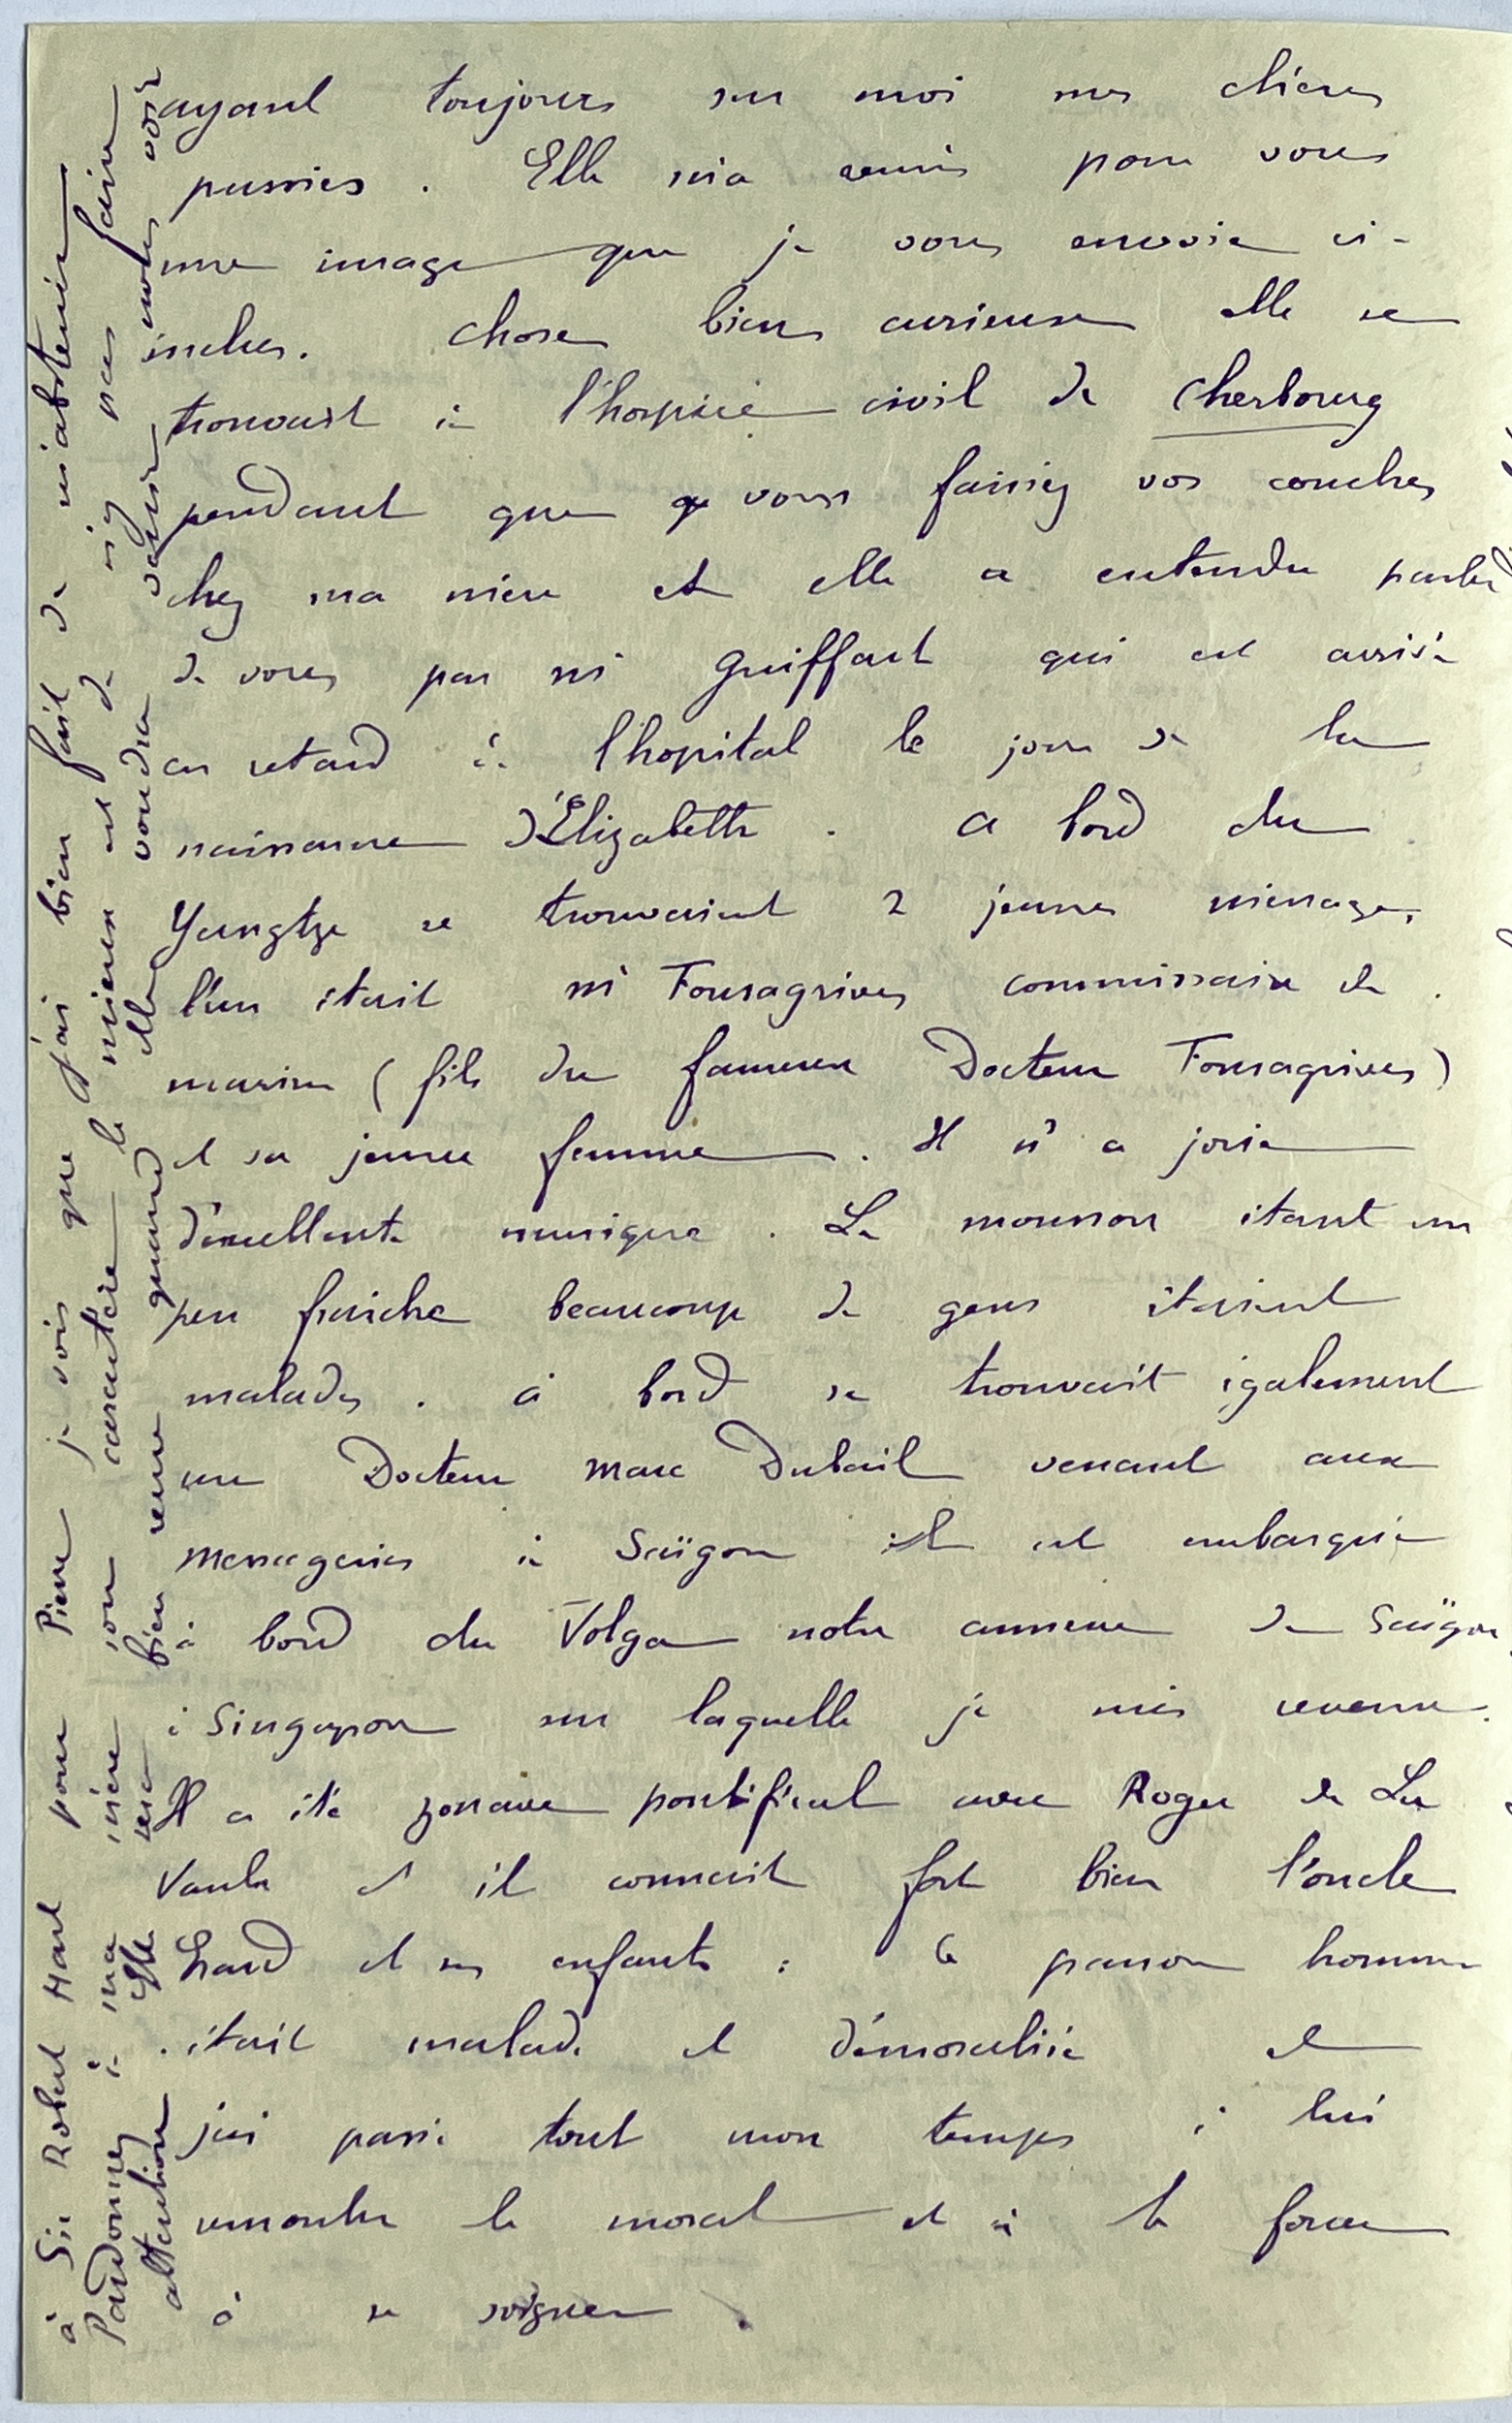 ayant toujours sur moi mes chères
pussies. Elle m'a remis pour vous
une image que je vous envoie ci-
inclus. Chose bien curieuse elle se
trouvait à l'hospice civil de Cherbourg
pendant que vous faisiez vos couches
chez ma mère et elle a entendu parler
de vous par Mr Guiffart qui est arrivé
en retard à l'hopital le jour de la
naissance d'Élizabeth. A bord du
Yangtze se trouvaient 2 jeunes ménages,
l'un était Mr Fonsagrives commissaire de
marine (fils du fameux Docteur Fonsagrives)
et sa jeune femme. Il n'a joué
d'excellente musique. La mousson étant un
peu fraiche beaucoup de gens étaient
malades. à bord se trouvait également
un Docteur Marc Dubail venant aux
Messageries à Saïgon il est embarqué
à bord du Volga notre annexe de Saïgon
à Singapour sur laquelle je suis revenu.
Il a été zouave pontifical avec Roger de La
et il connait fort bien l'oncle
et ses enfants : le pauvre homme
était malade et démoralisé et
j'ai passé tout mon temps à lui
remonter le moral et à le forcer
à se soigner.
à Sir Robert Hart pour Pierre je vois que j'ai bien fait de m'abstenir
Pardonnez à ma mère son caractère le mieux est de n'y pas faire
attention. Elle sera bien reçue quand elle voudra venir nous voir